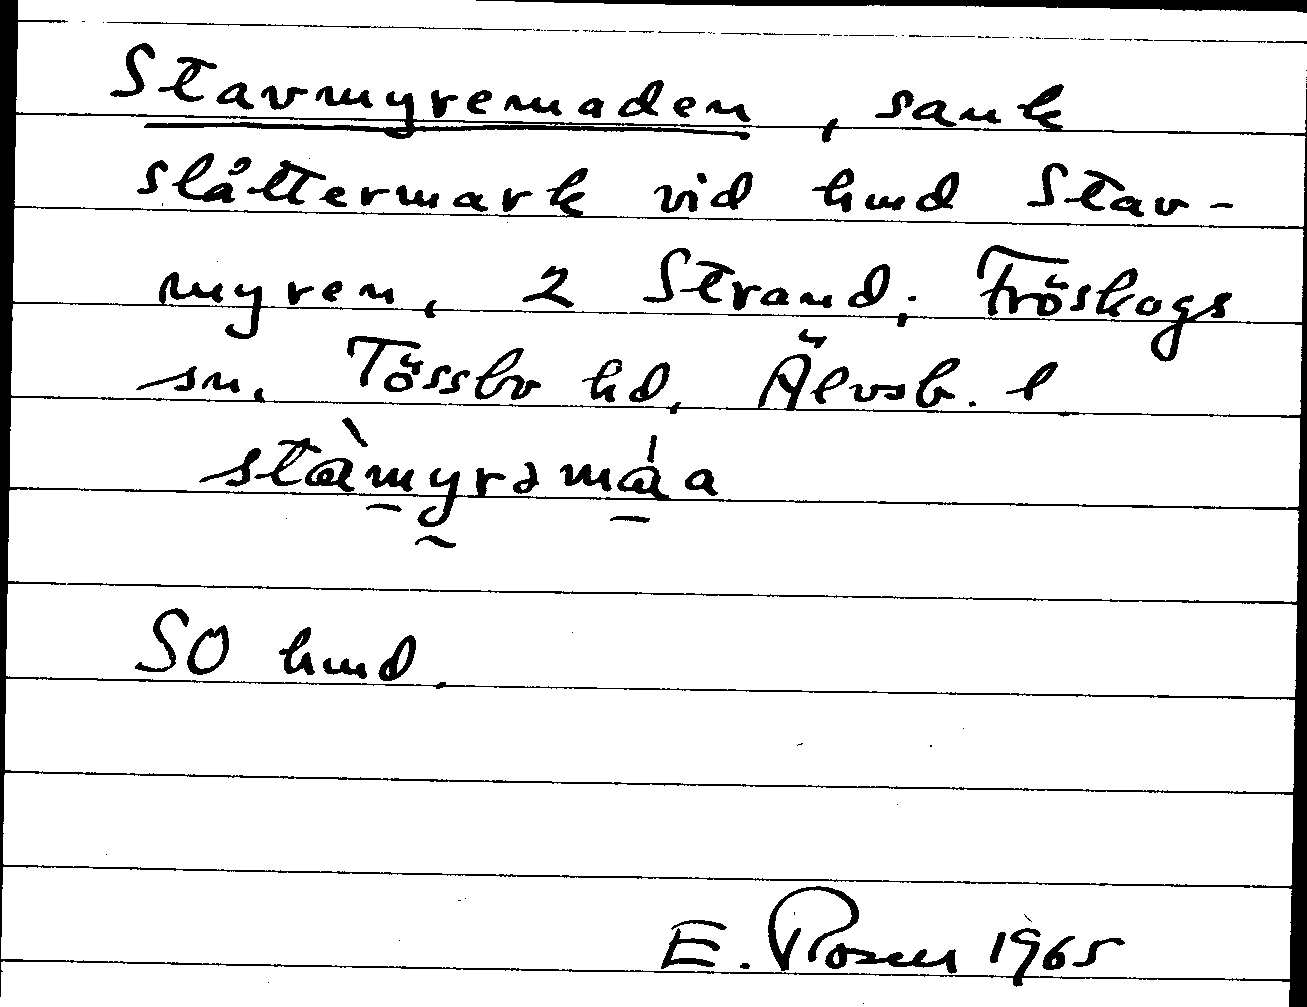 Stavmyremaden, sank
slåttermark vid hmd Stav-
myren, 2 Strand; Fröskogs
sn. Tössbo hd. Älvsb. l
stàmyrəmáa
SO hmd.
E. Rosen 1965